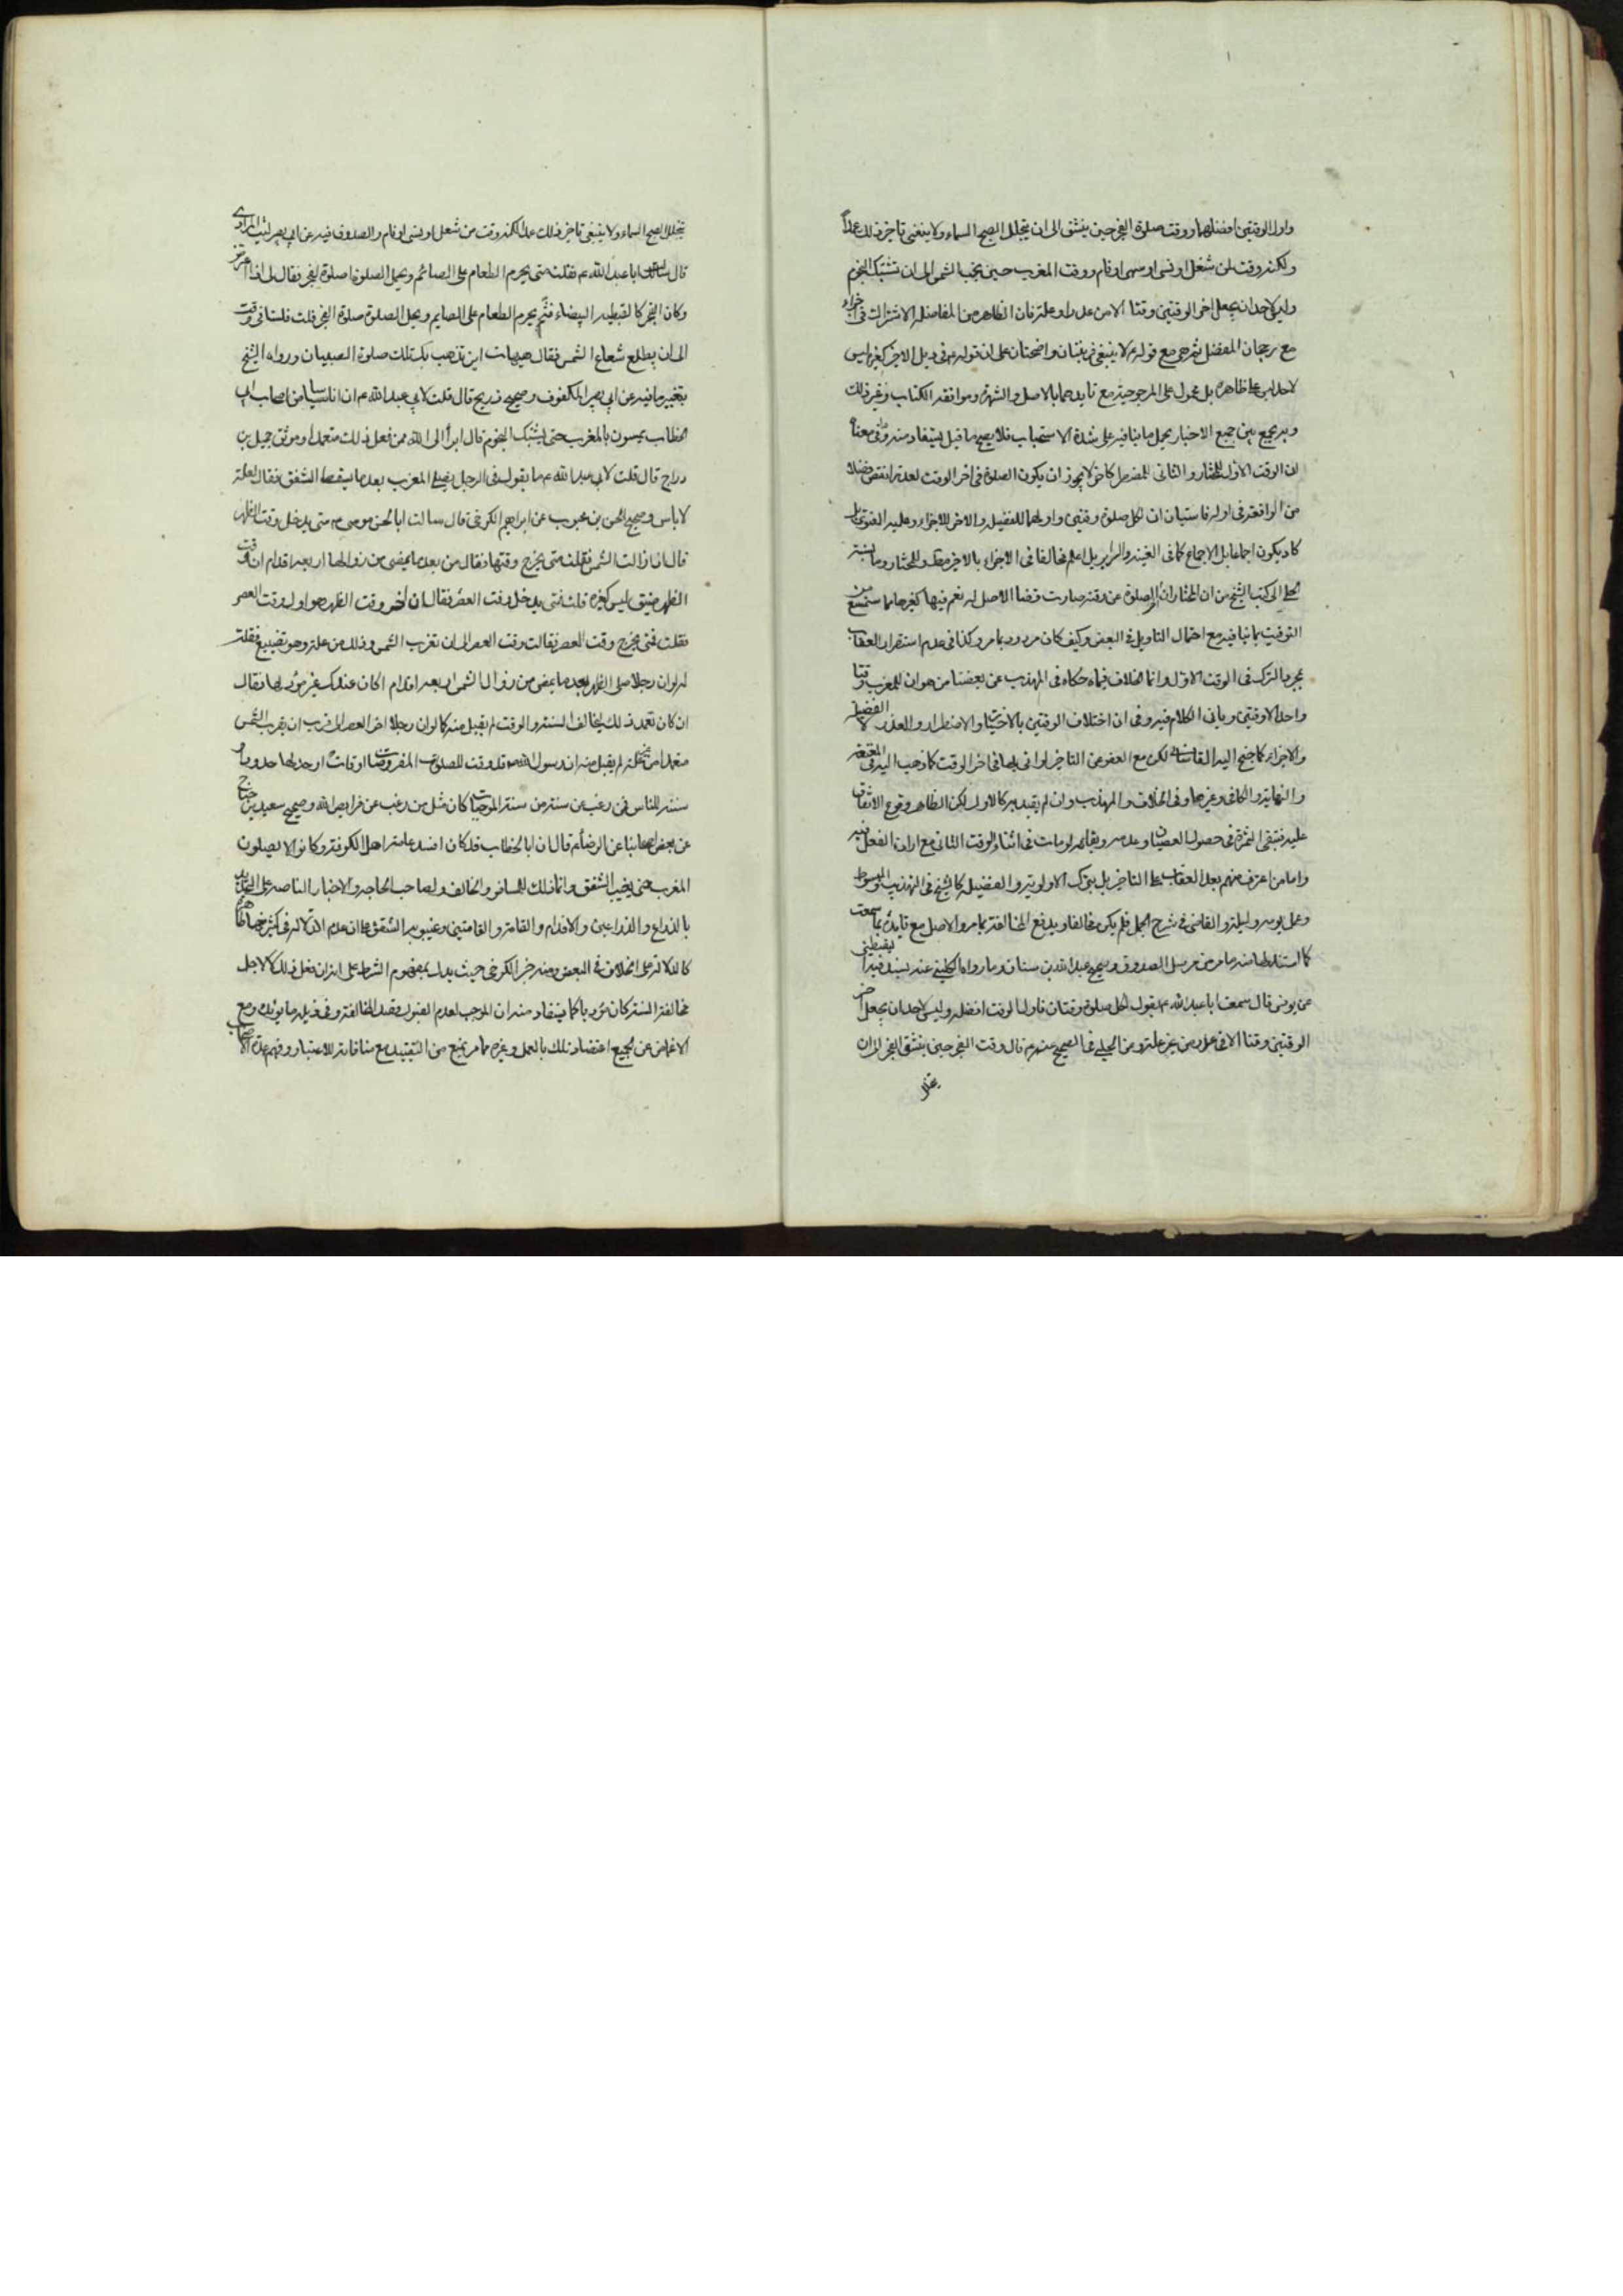 واول الوقتين افضلهما ووقت صلوة الفجر حين ينشق الى ان يتجلل الصبح السماء ولا ينبغي تاخير ذلك عمداً
ولكنه وقت لمن شغل او نسى او سهى او نام ووقت المغرب حين تجب الشمس الى ان تشتبك النجوم
وليس لاحد ان يجعل اخر الوقتين وقتا الا من عذر او علة فان الظاهر من المفاضلة الاشتراك في الاجزاء
مع رجحان المفضل ثم هي مع قوله لا ينبغي قرينتان واضحتان على ان قوله في ذيل الاخر كغيره ليس
لاحد ليس على ظاهره بل محمول على المرجوحية مع تايدهما بالاصل والشهرة وموافقة الكتاب وغير ذلك
وبه يجمع بين جميع الاخبار بحمل ما ينافيه على شدة الاستحباب فلا يصح ما قيل يستفاد منه وما في معناه
ان الوقت الاول للمختار والثاني للمضطر كما لا يجوز ان يكون الصلوة في اخر الوقت لعذر انقص فضلا
من الواقعة في اوله فاستبان ان لكل صلوة وقتين واولهما للفضيلة والاخر للاجزاء وعليه الفتوى بل
كاد يكون اجماعا بل الاجماع كما في الغنية والسرائر بل لم اعلم مخالفا في الاجزاء بالاخير مطلقا وللمختار وما نسبه
الحلي الى كتب الشيخ من ان المختار اذا اخر الصلوة عن وقته صارت قضا الاصل له نعم فيها كغيرها مما ستسمع من
التوقيت ما ينافيه مع احتمال التاويل في البعض وكيف كان مردود بما مر وكذا في عدم استقرار العقاب
بمجرد الترك في الوقت الاول وانما الخلاف فيما حكاه في المهذب عن بعضنا من هو ان للمغرب وقتا
واحدا لا وقتين وياتي الكلام فيه وفي ان اختلاف الوقتين بالاختيار والاضطرار والعذر لا الفضيلة
والاجزاء كما جنح اليه القاساني لكن مع العفو عن التاخير لو اتى بها في اخر الوقت كما ذهب اليه في المقنعة
والنهاية والكافي وغيرها وفي الخلاف والمهذب وان لم يقيد به كالاول لكن الظاهر وقوع الاتفاق
عليه فتبقى الثمرة في حصول العصيان وعدمه وبقائه لو مات في اثناء الوقت الثاني مع ارادة الفعل فيه
واما من اعترف منهم بعد العقاب على التاخير بل بترك الاولوية والفضيلة كالشيخ في التهذيب والمبسوط
وعمل يوم وليلة والقاضي في شرح الجمل فلم يكن مخالفا ويدفع المخالفة بما مر والاصل مع تايده بما سمعت
كما استدلا منه ما مر من مرسل الصدوق وصحيح عبد الله بن سنان وما رواه الكليني عنه بسند فيه
عن يونس قال سمعت ابا عبد الله يقول لكل صلوة وقتان فاول الوقت افضله وليس لاحد ان يجعل اخر
الوقتين وقتا الا في عذر من غير علة ومن الحلبي في الصحيح عنه قال وقت الفجر حين ينشق الفجر الى ان
يتجلل
يتجلل الصبح السماء ولا ينبغي تاخير ذلك عمدا لكنه وقت من شغل او نسى او نام والصدوق فيه عن ابي بصير ليث المرادي
قال سالت ابا عبد الله ع فقلت متى يحرم الطعام على الصائم ويحل الصلوة صلوة الفجر فقال لي اذا اعترض
وكان الفجر كالقبطية البيضاء فثم يحرم الطعام على الصايم ويحل الصلوة صلوة الفجر قلت فلسنا في وقت
الى ان يطلع شعاع الشمس فقال هيهات اين تذهب بك تلك صلوة الصبيان ورواه الشيخ
بتغيير ما فيه عن ابي بصير المكفوف وصحيح ذريح قال قلت لابي عبد الله ع ان اناسا من اصحاب ابي
الخطاب يمسون بالمغرب حتى تشتبك النجوم قال ابرأ الى الله ممن فعل ذلك متعمدا وموثق جميل بن
دراج قال قلت لابي عبد الله ع ما يقول في الرجل يصلي المغرب بعد ما يسقط الشفق فقال لعلة
لا باس وصحيح الحسن بن محبوب عن ابراهيم الكرخي قال سالت ابا الحسن موسى ع متى يدخل وقت الظهر
قال اذا زالت الشمس فقلت متى يخرج وقتها فقال من بعد ما يمضي من زوالها اربعة اقدام ان وقت
الظهر ضيق ليس كغيره قلت فمتى يدخل وقت العصر فقال ان اخر وقت الظهر هو اول وقت العصر
فقلت فمتى يخرج وقت العصر فقال وقت العصر الى ان تغرب الشمس وذلك من علة وهو تضييع فقلت
له لو ان رجلا صلى الظهر بعد ما يمضي من زوال الشمس اربعة اقدام اكان عندك غير مؤد لها فقال
ان كان تعمد ذلك ليخالف السنة والوقت لم يقبل منه كما لو ان رجلا اخر العصر الى قرب ان يغرب الشمس
متعمدا من غير علة لم يقبل منه ان رسول الله ص قد وقت للصلوات المفروضات اوقاتا وحد لها حدودا
سنة للناس فمن رغب عن سنة من سنن الموجبات كان مثل من رغب عن فرايض الله وصحيح سعيد بن جناح
عن بعض اصحابنا عن الرضا ع قال ان ابا الخطاب قد كان افسد عامة اهل الكوفة وكانوا لا يصلون
المغرب حتى يغيب الشفق وانما ذلك للمسافر والخائف ولصاحب الحاجة والاخبار الناصة على التحديد
بالذراع والذراعين والاقدام والقامة والقامتين وغيبوبة الشفق
كالدلالة على الخلاف في البعض ومنه خبر الكرخي حيث يدل بمفهوم الشرط على انه ان فعل ذلك لا لاجل
مخالفة السنة كان مؤديا كما يستفاد منه ان الموجب لعدم القبول قصد المخالفة وفي ذيله ما يؤيده ومع
الاغماض عن الجميع اعتضاد تلك بالعمل وغيره مما مر يمنع من التقييد مع منافاته للاعتبار وفهم عدة الاصحاب